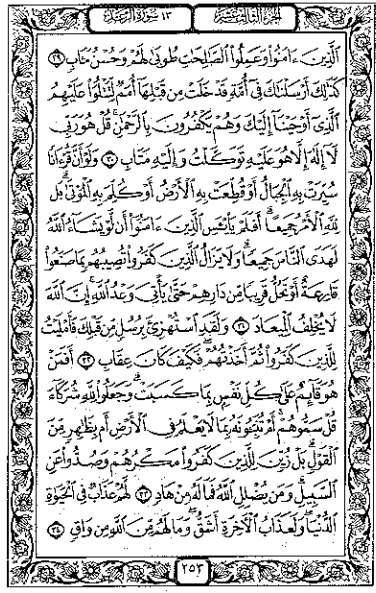 سورة الرعد ١٣
الجزء الثالث عشر
الَّذِينَ ءَامَنُوا۟ وَعَمِلُوا۟ الصَّٰلِحَٰتِ طُوبَىٰ لَهُمْ وَحُسْنُ مَـَٔابٍ ٢٩
كَذَٰلِكَ أَرْسَلْنَٰكَ فِىٓ أُمَّةٍ قَدْ خَلَتْ مِن قَبْلِهَآ أُمَمٌ لِّتَتْلُوَا۟ عَلَيْهِمُ
الَّذِىٓ أَوْحَيْنَآ إِلَيْكَ وَهُمْ يَكْفُرُونَ بِالرَّحْمَٰنِ ۚ قُلْ هُوَ رَبِّى
لَآ إِلَٰهَ إِلَّا هُوَ عَلَيْهِ تَوَكَّلْتُ وَإِلَيْهِ مَتَابِ ٣٠ وَلَوْ أَنَّ قُرْءَانًا
سُيِّرَتْ بِهِ الْجِبَالُ أَوْ قُطِّعَتْ بِهِ الْأَرْضُ أَوْ كُلِّمَ بِهِ الْمَوْتَىٰ ۗ بَل
لِّلَّهِ الْأَمْرُ جَمِيعًا ۗ أَفَلَمْ يَا۟يْـَٔسِ الَّذِينَ ءَامَنُوٓا۟ أَن لَّوْ يَشَآءُ اللَّهُ
لَهَدَى النَّاسَ جَمِيعًا ۗ وَلَا يَزَالُ الَّذِينَ كَفَرُوا۟ تُصِيبُهُم بِمَا صَنَعُوا۟
قَارِعَةٌ أَوْ تَحُلُّ قَرِيبًا مِّن دَارِهِمْ حَتَّىٰ يَأْتِىَ وَعْدُ اللَّهِ ۚ إِنَّ اللَّهَ
لَا يُخْلِفُ الْمِيعَادَ ٣١ وَلَقَدِ اسْتُهْزِئَ بِرُسُلٍ مِّن قَبْلِكَ فَأَمْلَيْتُ
لِلَّذِينَ كَفَرُوا۟ ثُمَّ أَخَذْتُهُمْ ۖ فَكَيْفَ كَانَ عِقَابِ ٣٢ أَفَمَنْ
هُوَ قَآئِمٌ عَلَىٰ كُلِّ نَفْسٍۭ بِمَا كَسَبَتْ ۗ وَجَعَلُوا۟ لِلَّهِ شُرَكَآءَ
قُلْ سَمُّوهُمْ ۚ أَمْ تُنَبِّـُٔونَهُۥ بِمَا لَا يَعْلَمُ فِى الْأَرْضِ أَم بِظَٰهِرٍ مِّنَ
الْقَوْلِ ۗ بَلْ زُيِّنَ لِلَّذِينَ كَفَرُوا۟ مَكْرُهُمْ وَصُدُّوا۟ عَنِ
السَّبِيلِ ۗ وَمَن يُضْلِلِ اللَّهُ فَمَا لَهُۥ مِنْ هَادٍ ٣٣ لَّهُمْ عَذَابٌ فِى الْحَيَوٰةِ
الدُّنْيَا ۖ وَلَعَذَابُ الْـَٔاخِرَةِ أَشَقُّ ۖ وَمَا لَهُم مِّنَ اللَّهِ مِن وَاقٍ ٣٤
٢٥٣